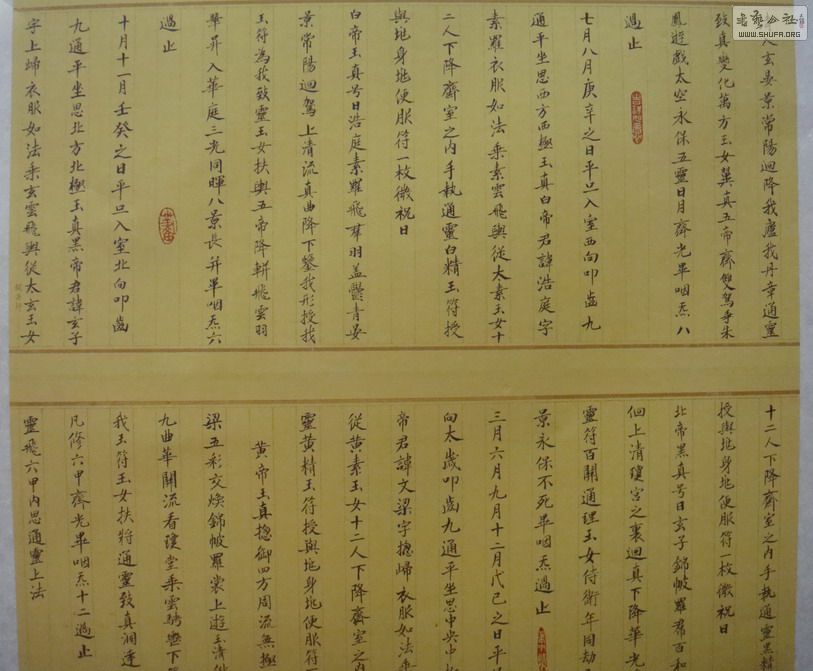 玄晏景常陽迴降我廬我丹章通靈
致真變化萬方玉女翼真五帝齊雙駕乘朱
鳳遊戲太空永保五靈日月齊光畢咽炁八
過止
七月八月庚辛之日平旦入室西向叩齒九
通平坐思西方西極玉真白帝君諱浩庭字
素羅衣服如法乘素雲飛輿從太素玉女十
二人下降齋室之內手執通靈白精玉符授
與兆身兆便服符一枚微祝曰
白帝玉真号曰浩庭素羅飛羣羽盖鬱青晏
景常陽迴駕上清流真曲降下鑒我形授我
玉符為我致靈玉女扶輿五帝降軿飛雲羽
舉昇入華庭三光同暉八景長并畢咽炁六
過止
十月十一月壬癸之日平旦入室北向叩齒
九通平坐思北方北極玉真黑帝君諱玄子
字上歸衣服如法乘玄雲飛輿從太玄玉女
十二人下降齋室之內手執通靈黑精
授與兆身兆便服符一枚微祝曰
北帝黑真号曰玄子錦帔羅帬百和
佪上清瓊宮之裏迴真下降華光
靈符百關通理玉女侍衛年同劫
景永保不死畢咽炁過止
三月六月九月十二月戊己之日平
向太歲叩齒九通平坐思中央中
帝君諱文梁字揔歸衣服如法乘
從黃素玉女十二人下降齋室之內
靈黃精玉符授與兆身兆便服符
黃帝玉真揔御四方周流無極
梁五彩交煥錦帔羅裳上遊玉清
九曲華關流看瓊堂乘雲騁轡下
我玉符玉女扶將通靈致真洞達
凡修六甲齊光畢咽炁十二過止
靈飛六甲內思通靈上法
書藝公社
WWW.SHUFA.ORG